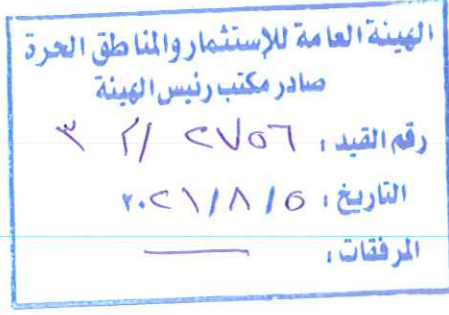 الهيئة العامة للإستثمار والمناطق الحرة
صادر مكتب رئيس الهيئة
رقم القيد : ٢٧٥٦ / ٢ ٣
التاريخ : ٥ / ٨ / ٢٠٢١
المرفقات :